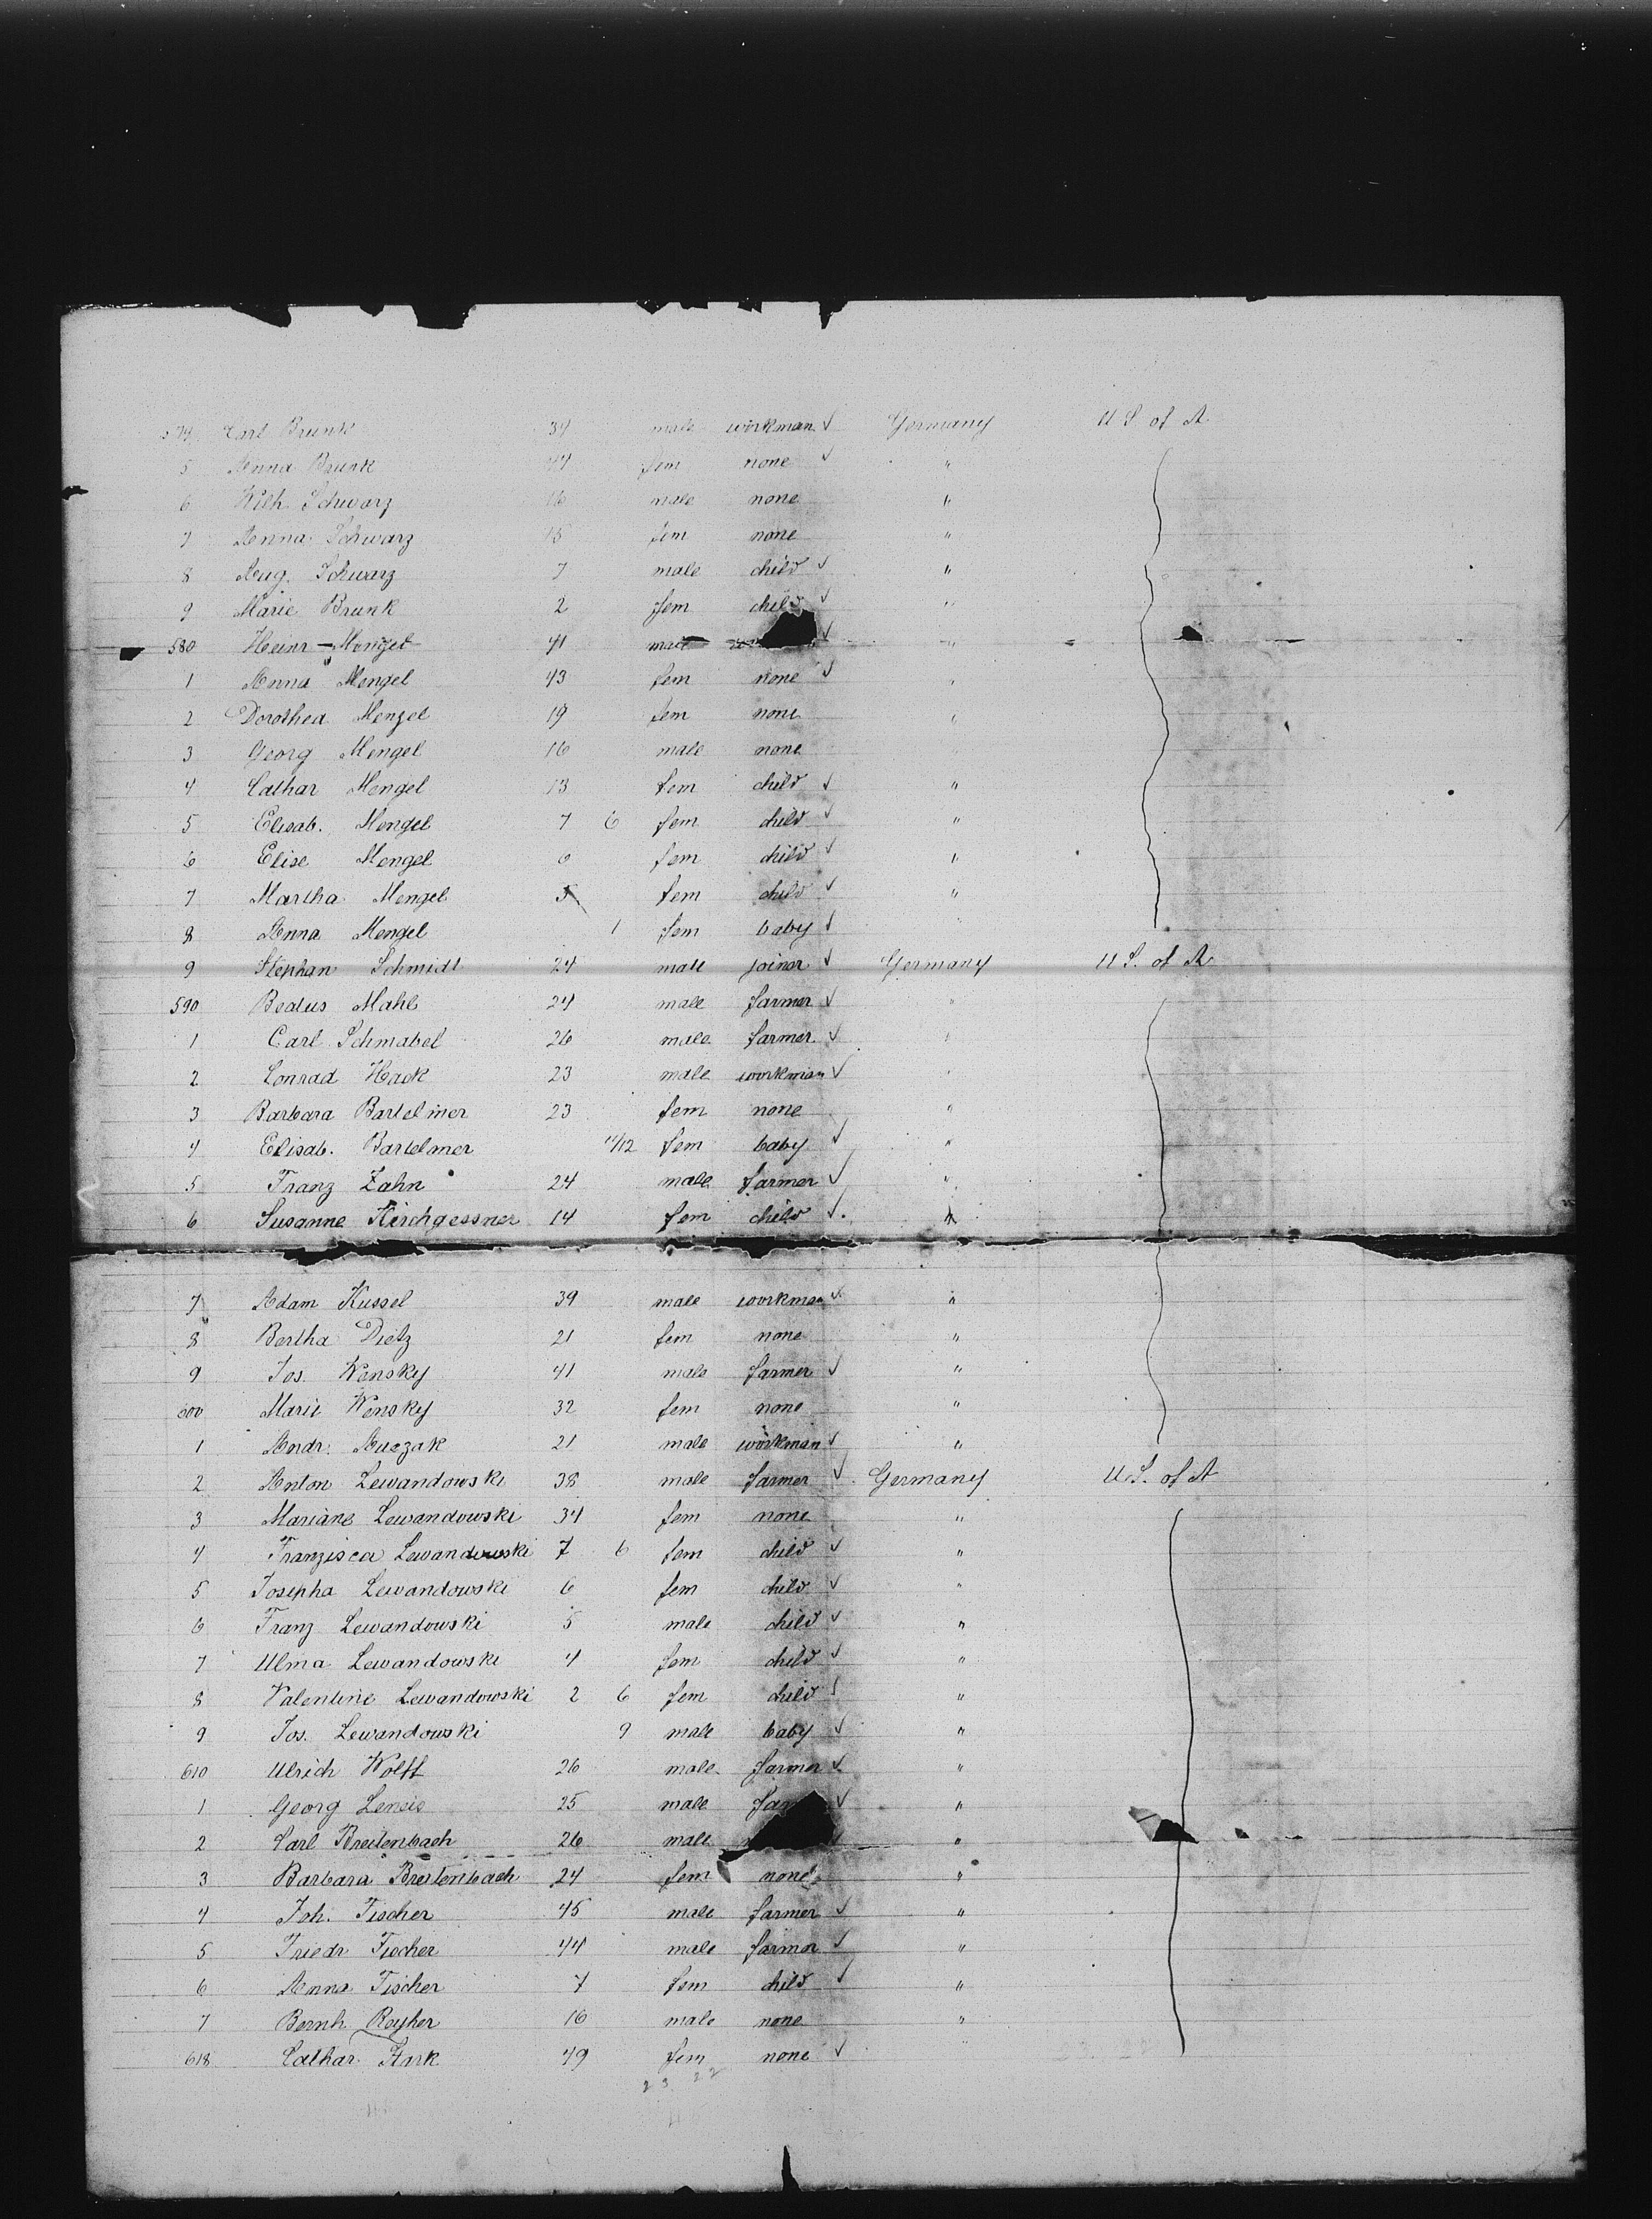 574 Carl Brunk 34 male workman √ Germany U S of A
5 Anna Brunk 44 fem none √ "
6 Wilh. Schwarz 16 male none "
7 Anna Schwarz 15 fem none "
8 Aug. Schwarz 7 male child √ "
9 Marie Brunk 2 fem child √ "
580 Heinr Mengel 41 male √ "
1 Anna Mengel 43 fem none √ "
2 Dorothea Mengel 19 fem none "
3 Georg Mengel 16 male none
4 Cathar Mengel 13 fem child √ "
5 Elisab. Mengel 7 6 fem child √ "
6 Elise Mengel 6 fem child √ "
7 Martha Mengel 5 fem child √ "
8 Anna Mengel 1 fem baby √ "
9 Stephan Schmidt 24 male joiner √ Germany U S. of A
590 Beatus Mahl 24 male farmer √ "
1 Carl Schmabel 26 male farmer √ "
2 Conrad Hack 23 male workman √ "
3 Barbara Bartelmer 23 fem none "
4 Elisab. Bartelmer 11/12 fem baby √ "
5 Franz Zahn 24 male farmer √ "
6 Susanne Kirchgessner 14 fem child √ "
7 Adam Kussel 39 male workman √ "
8 Bertha Dietz 21 fem none "
9 Jos. Wensky 41 male farmer √ "
600 Marie Wensky 32 fem none "
1 Andr. 21 male workman √ "
2 Anton Lewandowski 38 male farmer √ Germany U.S. of A
3 Mariane Lewandowski 34 fem none "
4 Franzisca Lewandowski 7 6 fem child √ "
5 Josepha Lewandowski 6 fem child √ "
6 Franz Lewandowski 5 male child √ "
7 Ulma Lewandowski 4 fem child √ "
8 Valentine Lewandowski 2 6 fem child √ "
9 Jos. Lewandowski 9 male baby √ "
610 Ulrich Wolff 26 male farmer √ "
1 Georg 25 male √ "
2 Carl Breitenbach 26 male √ "
3 Barbara Breitenbach 24 fem none "
4 Joh. Fischer 45 male farmer √ "
5 Friedr Fischer 44 male farmer √ "
6 Anna Fischer 7 fem child √ "
7 Bernh Reyher 16 male none "
618 Cathar. Stark 49 fem none √
23 22